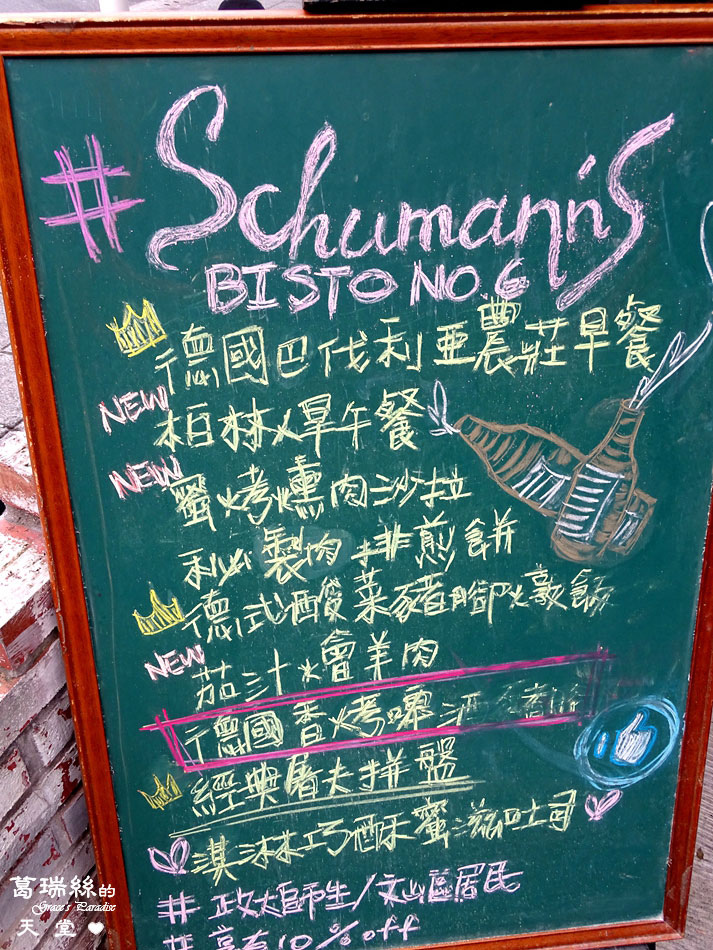 #Schumann's
BISTO NO.6
德國巴伐利亞農莊早餐
NEW 柏林火早午餐
NEW 蜜烤燻肉沙拉
製肉排煎餅
德式酸菜豬腳火敦飯
NEW 茄汁火會羊肉
德國香烤啤酒
經典屠夫拼盤
淇淋巧酥蜜滋吐司
# 政大師生/文山區居民
# 享有10% off
葛瑞絲的
Grace's Paradise
天堂